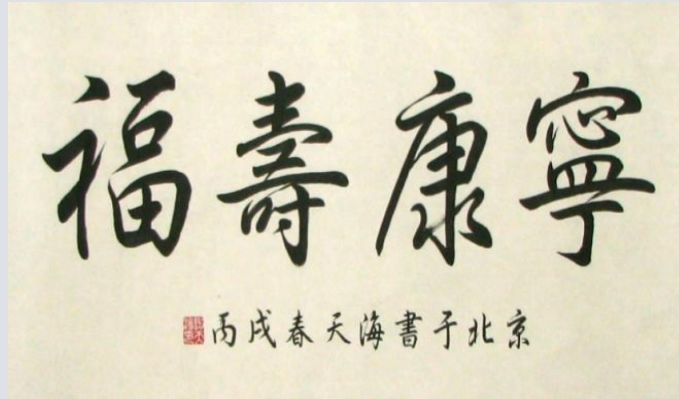 福壽康寧
丙戌春天海書于北京